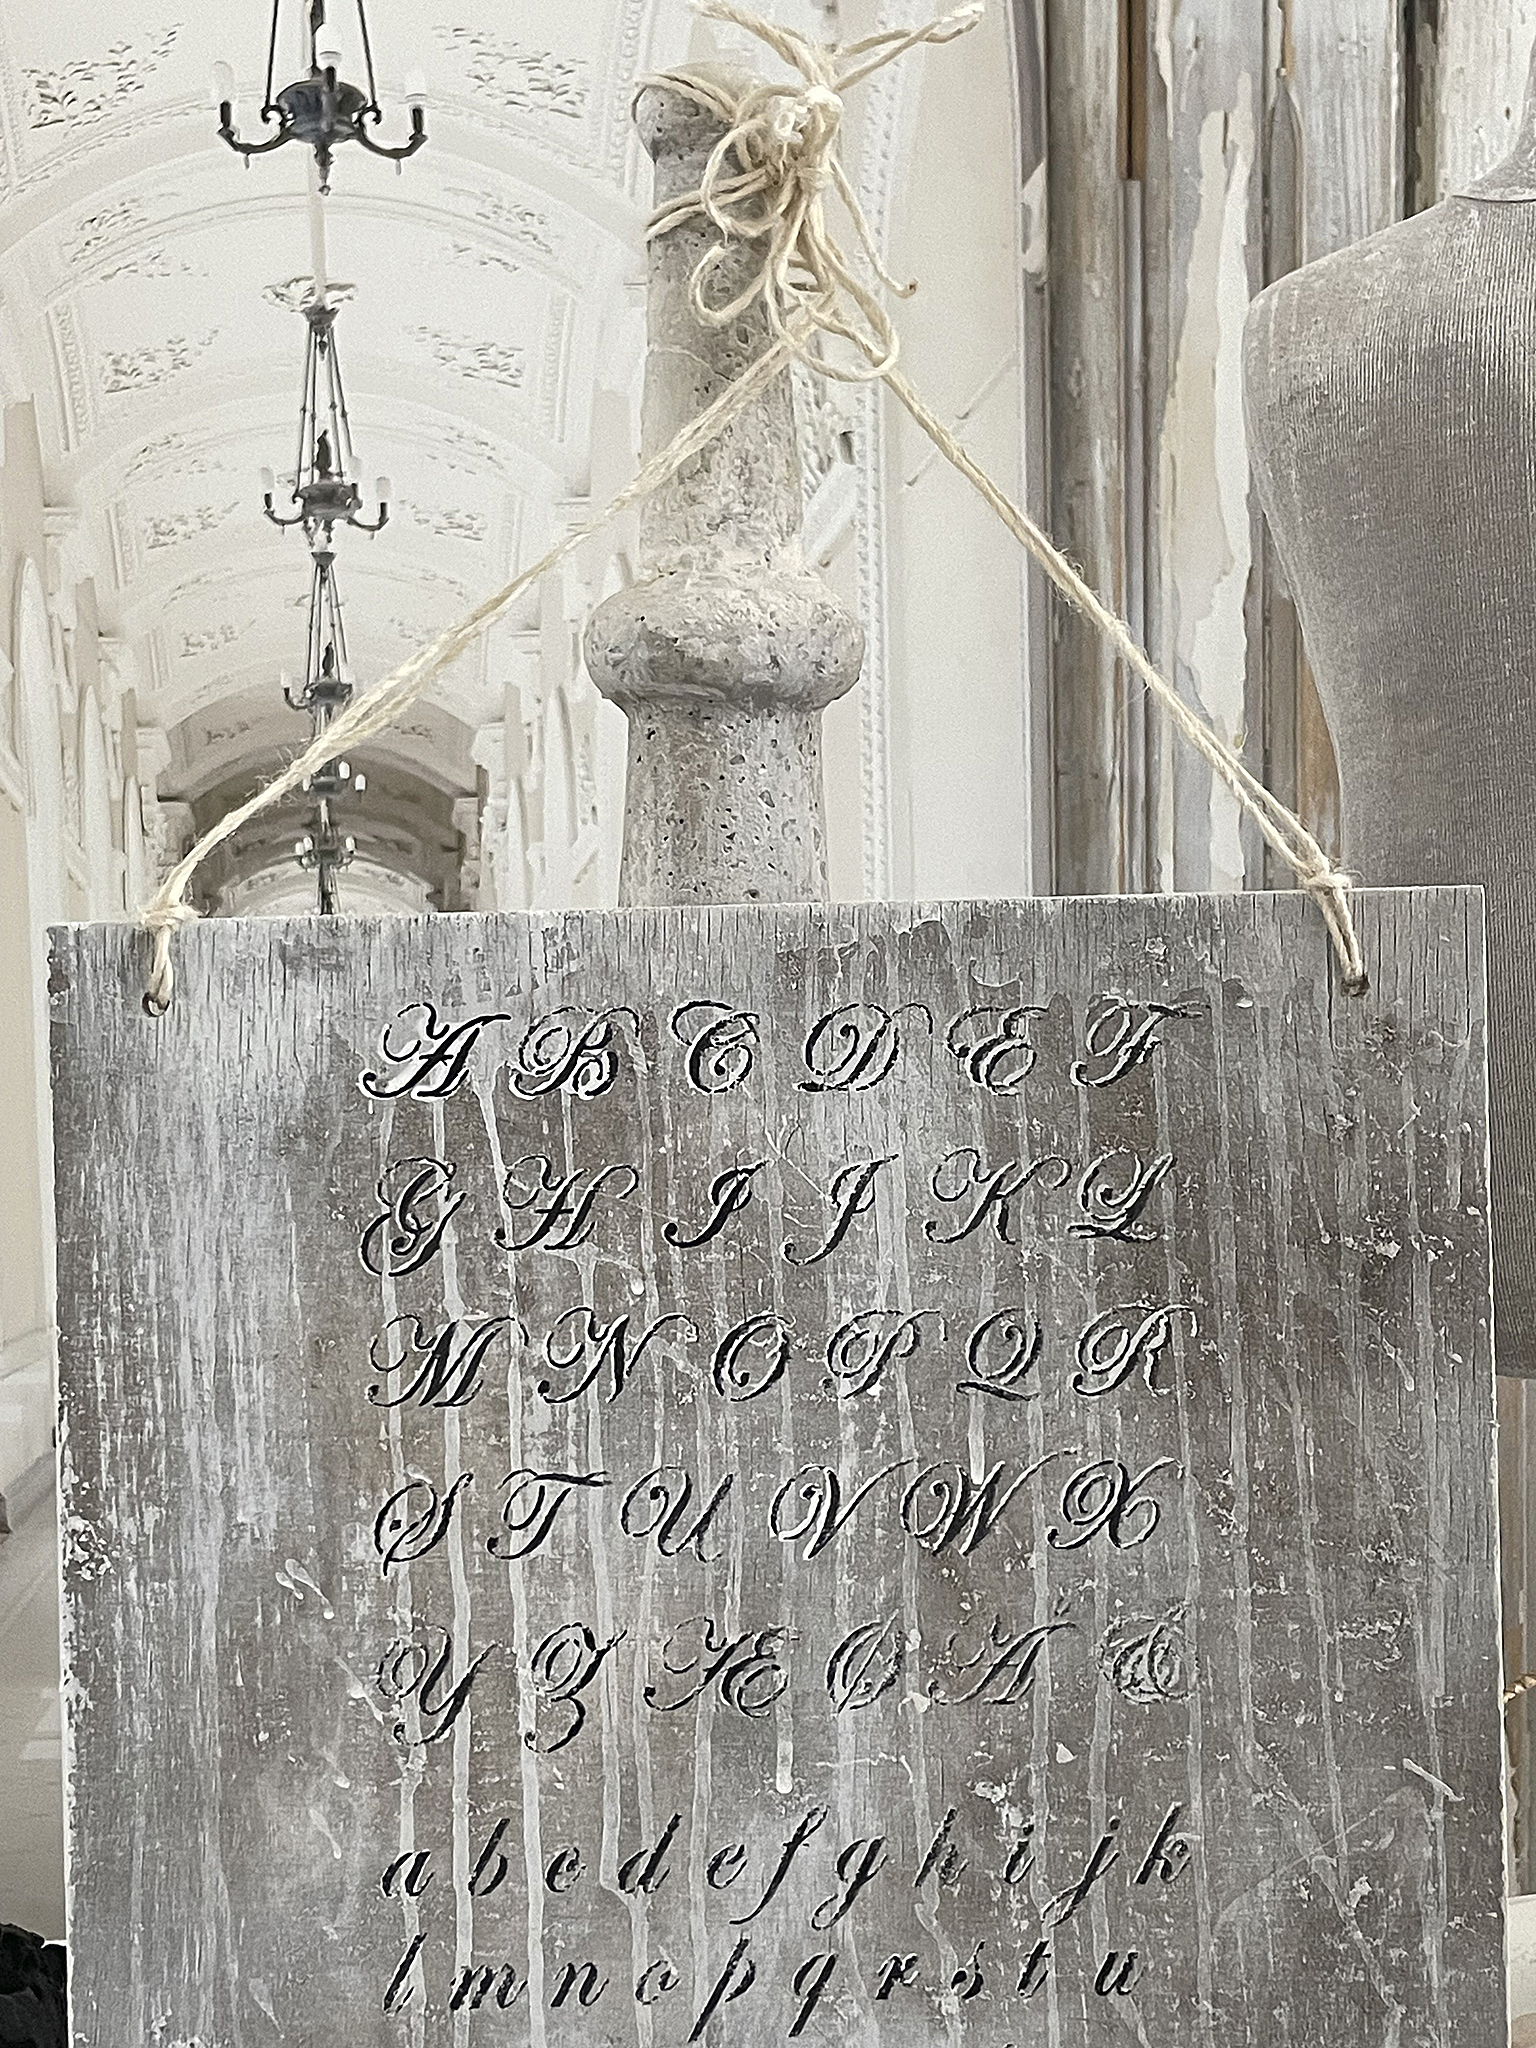 A B C D E F
G H I J K L
M N O P Q R
S T U V W X
Y Z Æ Ø Å
a b c d e f g h i j k
l m n o p q r s t u